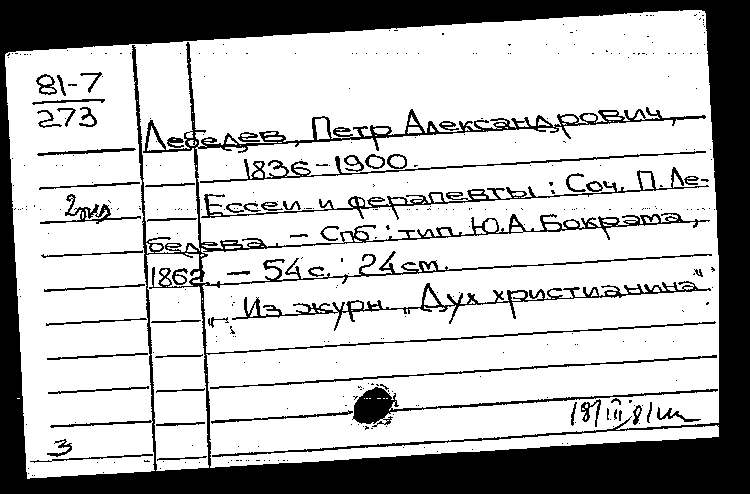 81-7
273
Лебедев, Петр Александрович,
1836-1900.
Ессеи и ферапевты : Соч. П. Ле-
бедева. - Спб. : тип. Ю.А. Бокрама,
1862. - 54 с. ; 24 см.
Из журн. „Дух христианина"
3